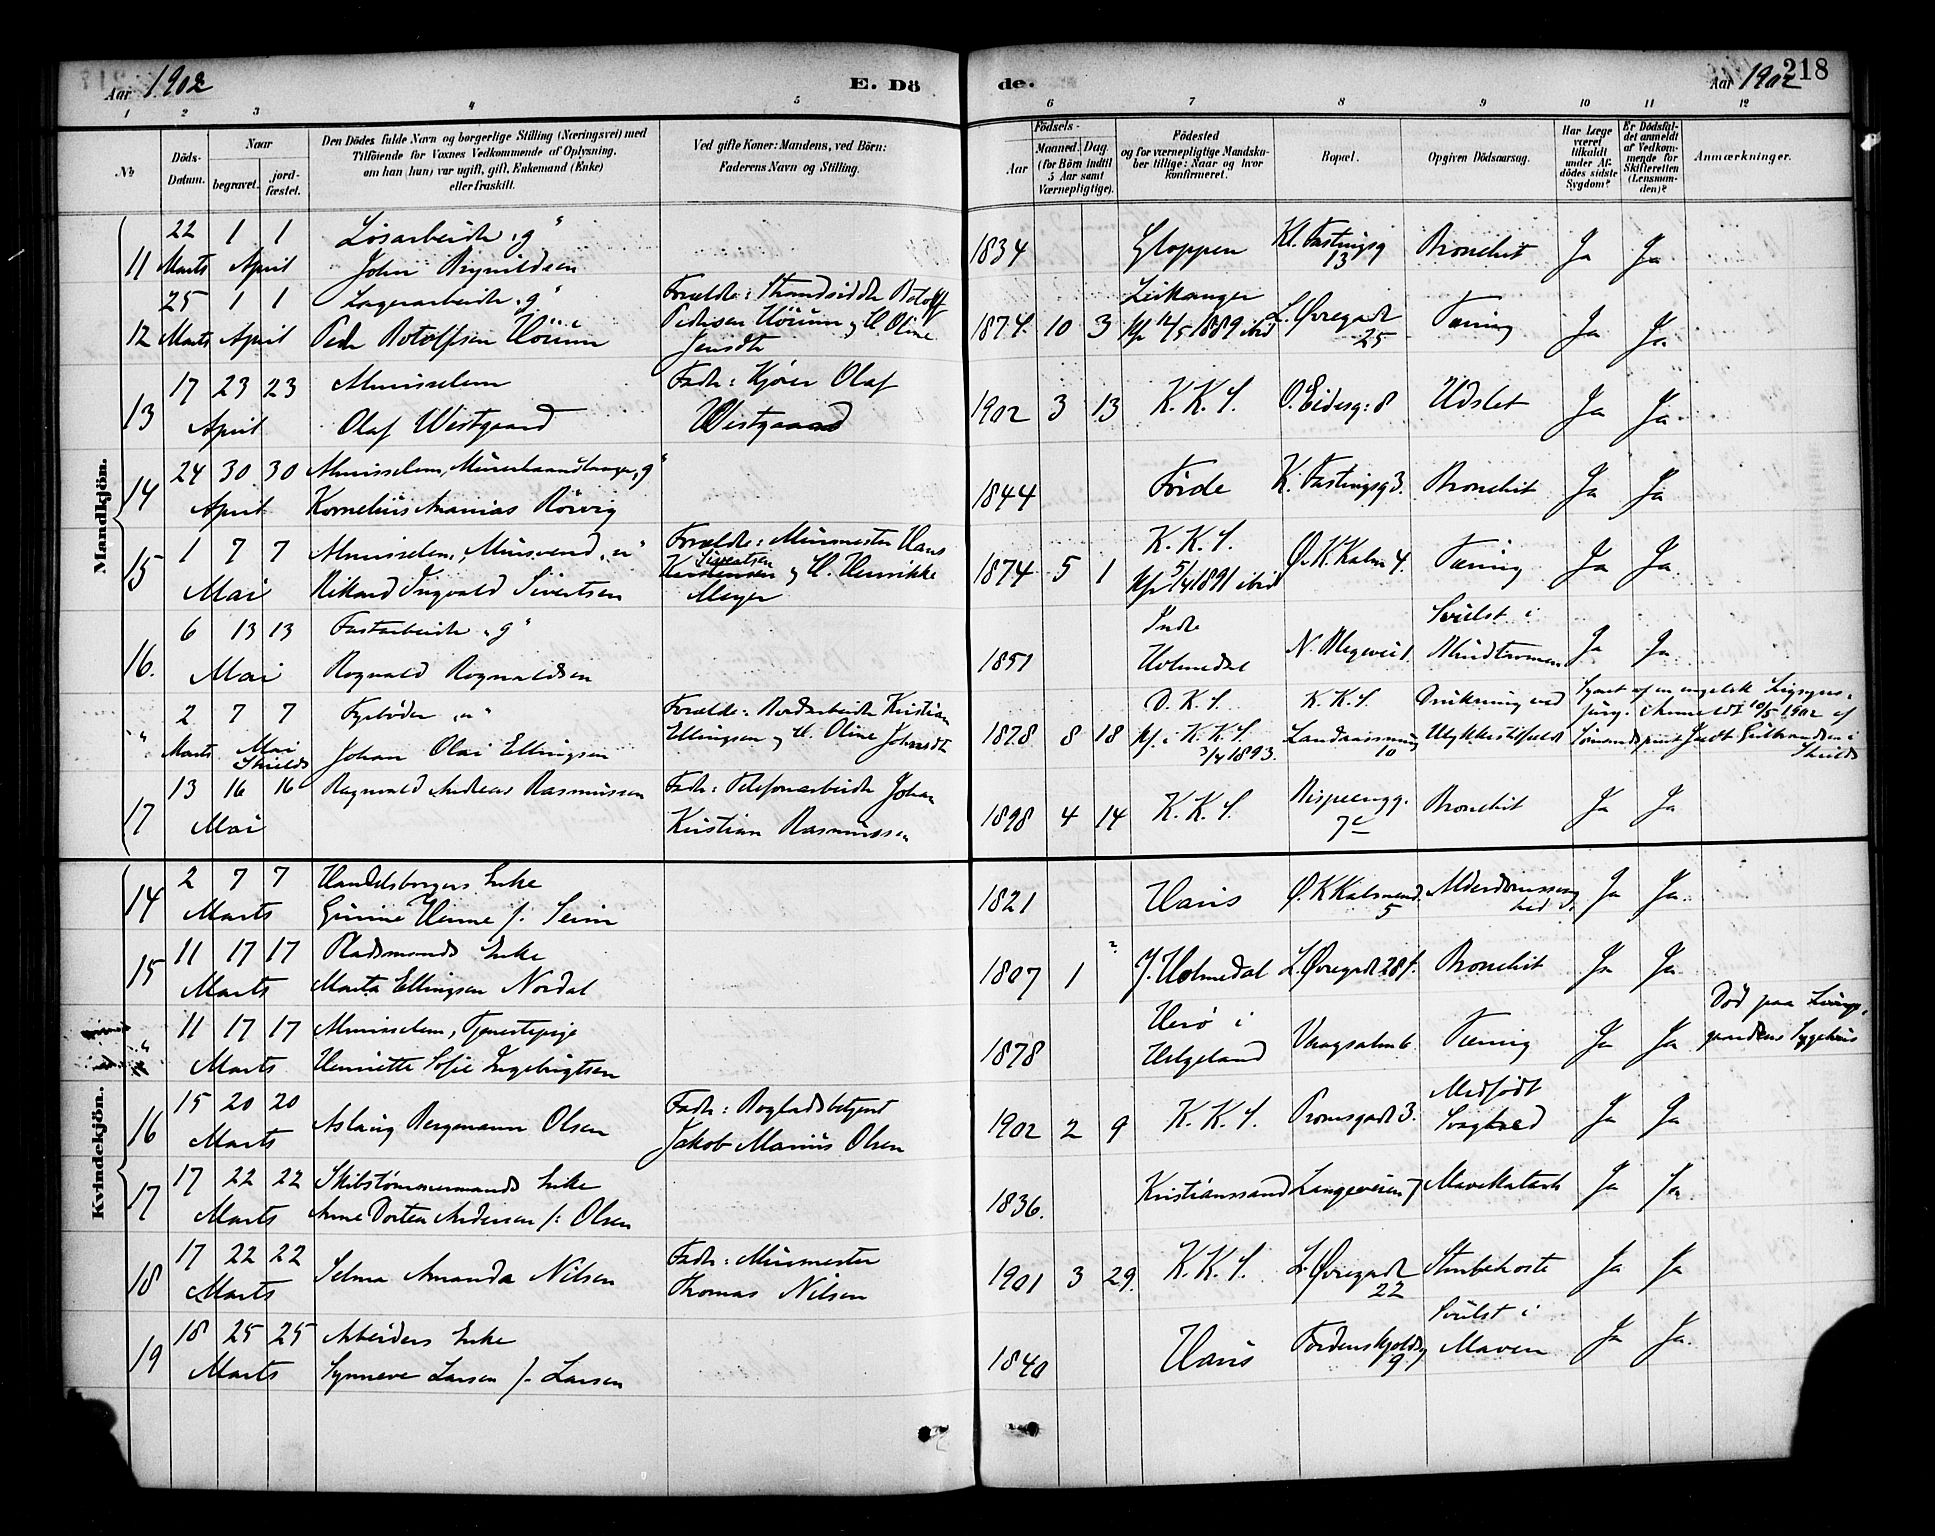 Aar 1902
E. Dö
de.
Aar 1902
218
1 2 3 4 5 6 7 8 9 10 11 12
No
Döds-
Datum.
Naar
begravet.
jord-
fæstet.
Den Dödes fulde Navn og borgerlige Stilling (Næringsvei) med
Tilföiende for Voxnes Vedkommende af Oplysning,
om han (hun) var ugift, gift, Enkemand (Enke)
eller fraskilt.
Ved gifte Koner: Mandens, ved Börn:
Faderens Navn og Stilling.
Födsels-
Aar
Maaned. Dag.
(for Börn indtil
5 Aar samt
Værnepligtige).
Födested
og for værnepligtige Mandska-
ber tillige: Naar og hvor
konfirmeret.
Bopæl.
Opgiven Dödsaarsag.
Har Læge
været
tilkaldt
under Af-
dödes sidste
Sygdom?
Er Dödsfal-
det anmeldt
af Vedkom-
mende for
Skifteretten
(Lensman-
den)?
Anmærkninger.
Mandkjön.
22 1 1 Løsarbeider „g“
11 Marts April John Brynildsen
1834 Gloppen Kl. Fastingsg 13 Bronchit Ja Ja
25 1 1 Lagerarbeider „g“ Forældre: Strandsidder Botolf
12 Marts April Peder Botolfsen Hörum Pedersen Hörum og H. Oline
Jensdtr
Leikanger
1874 10 3 Kf 12/5 1889 ibid L. Øvregade 25 Tæring Ja Ja
17 23 23 Almisselem Fader: Kjører Olaf
13 April Olaf Westgaard Westgaard
1902 3 13 K. K. S. O. Eidesg: 8 Udslet Ja Ja
24 30 30 Almisselem, Murerhaandlanger „g“
14 April Kornelius Ananias Rörvig
1844 Förde K. Fastingsg 3. Bronchit Ja Ja
1 7 7 Almisselem, Mursvend „u“ Forældre: Murmester Hans
Sivertsen
15 Mai Rikard Ingvald Sivertsen Kristensen og H. Henrikke
Meyer
K. K. S.
1874 5 1 Kf 5/4 1891 ibid Ø. K. Kalm 4. Tæring Ja Ja
6 13 13 Fastarbeider „g“
16. Mai Rognald Rognaldsen
1851 Indre Holmedal N. Blegevei 1. Svulst i Blindtarmen Ja Ja
2 7 7 Fyrbøder „u“ Forældre: Bordarbeider Kristian
„ Marts Mai Shields Johan Olai Ellingsen Ellingsen og H. Oline Johnsdtr
D. K. S.
1878 8 18 Kf. i K. K. S. 3/4 1893. K. K. S. Landaasmuren 10 Drukning ved Ulykkestilfælde
10/5 1902 af
Sømandsprest
Shields
13 16 16 Ragnvald Andreas Rasmussen Fader: Telefonarbeider Johan
17 Mai Kristian Rasmussen
1898 4 14 K. K. S. Bispeengg. 7c Bronchit Ja Ja
Kvindekjön.
2 7 7 Handelsborgers Enke
14 Marts Gurine Henne f. Seim
1821 Haus Ø. K Kalmand. 5 Alderdomssvaghed Ja Ja
11 17 17 Pladsmands Enke
15 Marts Marta Ellingsen Nordal
1807 1 2 Y. Holmedal L. Øvregade 28 f. Bronchit Ja Ja
11 17 17 Almisselem, Tjenestepige
„ Marts Henriette Sofie Ingebrigtsen
1878 Herö i Helgeland Vaagsalm 6. Tæring Ja Ja Död paa Lungegaardens Sygehus
15 20 20 Fader: Bogladsbetjent
16 Marts Aslaug Bergmann Olsen Jakob Marius Olsen
1902 2 9 K. K. S. Tromsgade 3. Medfødt Svaghed Ja Ja
17 22 22 Skibstømmermands Enke
17 Marts Anne Dortea Andersen f: Olsen
1836. Kristianssand Langeveien 7 Mavekatarh Ja Ja
17 22 22 Fader: Murmester
18 Marts Selma Amanda Nilsen Thomas Nilsen
1901 3 29. K. K. S. L. Øvregade 22 Strubehoste Ja Ja
18 25 25 Arbeiders Enke
19 Marts Synneve Larsen f. Larsen
1840 Haus Tordenskjoldsg 9 Svulst i Maven Ja Ja